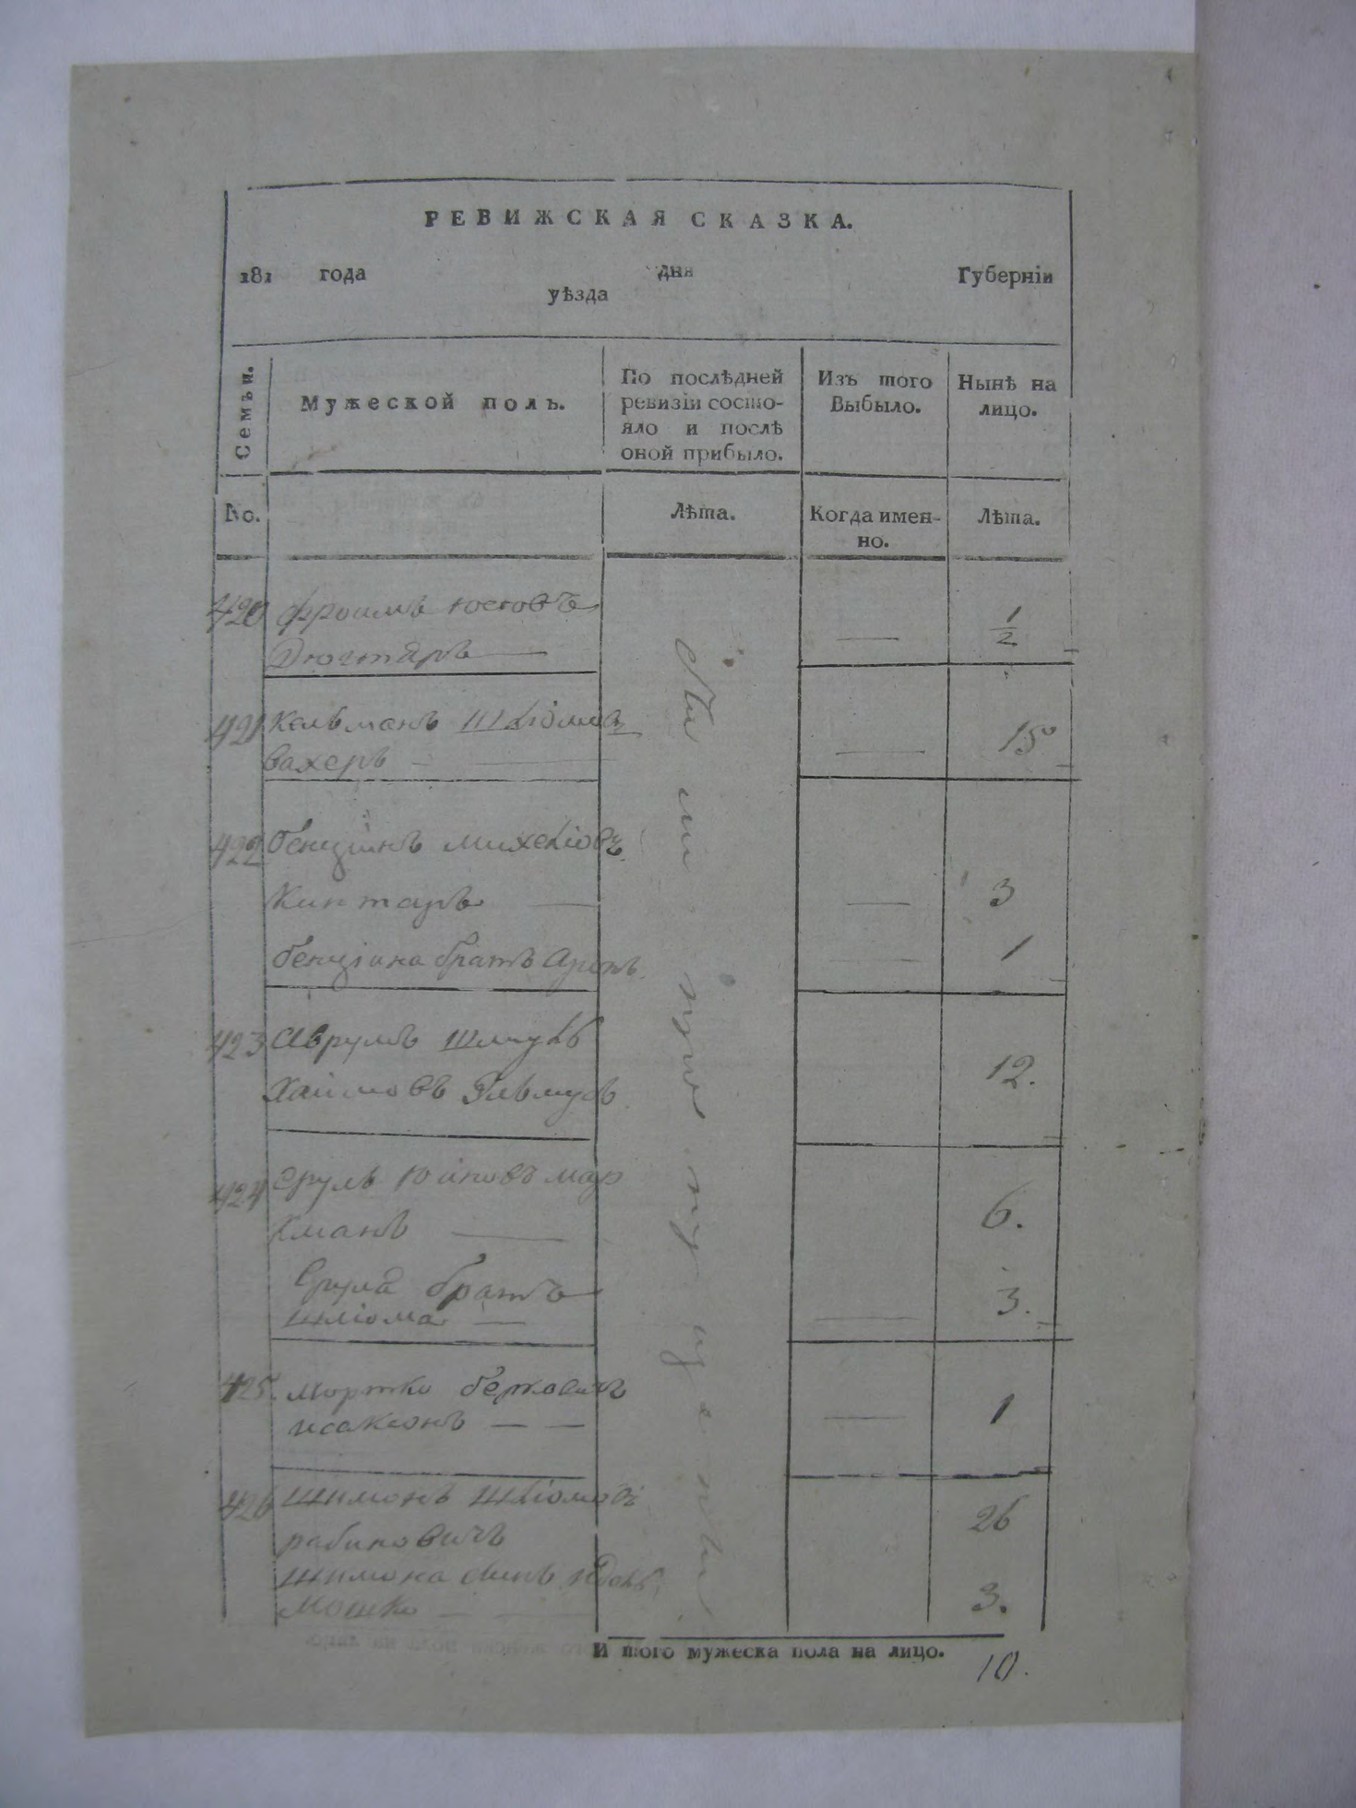 РЕВИЖСКАЯ СКАЗКА.
181 года дня Губерніи
уѣзда
Семьи.
Мужеской полъ.
По послѣдней
ревизіи состо-
яло и послѣ
оной прибыло.
Изъ того
Выбыло.
Нынѣ на
лицо.
No.
Лѣта.
Когда имен-
но.
Лѣта.
420 Фроимъ Юсіовъ
1/2
421 Кельманъ Шліомов
вахеръ 15
422 Бенціинъ Михеліовъ
Кинтаръ — — 3
Бенціина братъ Аронъ — 1
423 Аврумъ Шмуль
Хаимовъ 12.
424 Сруль мар
хманъ — 6.
Сруля братъ
Шліома — — 3.
425. Мортко Берковичъ
исаксонъ — — — 1
426 Шимонъ Шліомовъ 26
рабиновичъ
Шимона сынъ
Мошко — — 3.
И того мужеска пола на лицо. 10.